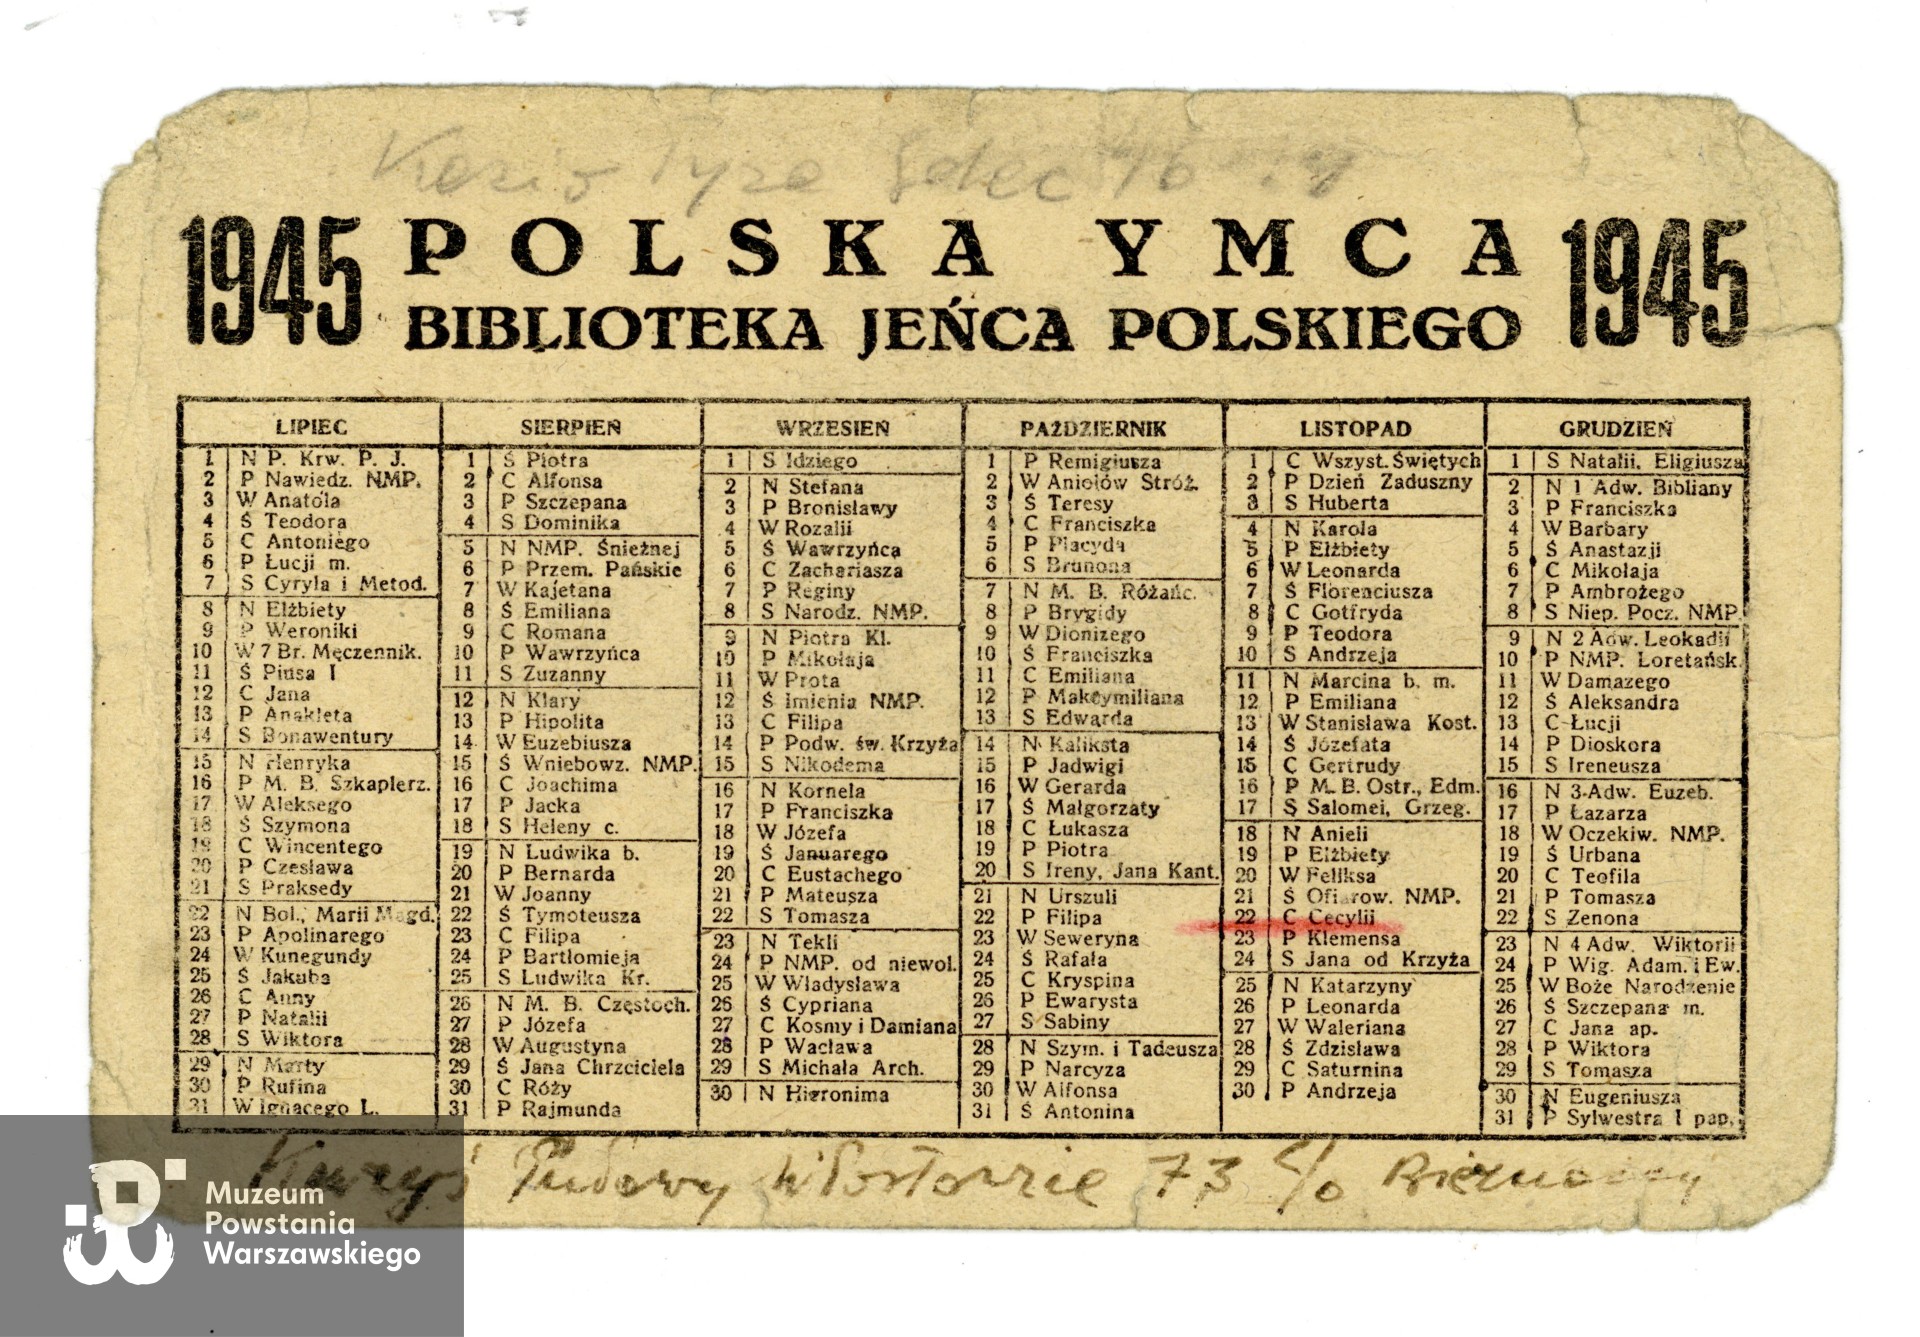 1945 POLSKA YMCA 1945
BIBLIOTEKA JEŃCA POLSKIEGO
LIPIEC
1 N P. Krw. P. J.
2 P Nawiedz. NMP.
3 W Anatola
4 Ś Teodora
5 C Antoniego
6 P Łucji m.
7 S Cyryla i Metod.
8 N Elżbiety
9 P Weroniki
10 W 7 Br. Męczennik.
11 Ś Piusa I
12 C Jana
13 P Anakleta
14 S Bonawentury
15 N Henryka
16 P M. B. Szkaplerz.
17 W Aleksego
18 Ś Szymona
19 C Wincentego
20 P Czesława
21 S Praksedy
22 N Bol., Marii Magd.
23 P Apolinarego
24 W Kunegundy
25 Ś Jakuba
26 C Anny
27 P Natalii
28 S Wiktora
29 N Marty
30 P Rufina
31 W Ignacego L.
SIERPIEŃ
1 Ś Piotra
2 C Alfonsa
3 P Szczepana
4 S Dominika
5 N NMP. Śnieżnej
6 P Przem. Pańskie
7 W Kajetana
8 Ś Emiliana
9 C Romana
10 P Wawrzyńca
11 S Zuzanny
12 N Klary
13 P Hipolita
14 W Euzebiusza
15 Ś Wniebowz. NMP.
16 C Joachima
17 P Jacka
18 S Heleny c.
19 N Ludwika b.
20 P Bernarda
21 W Joanny
22 Ś Tymoteusza
23 C Filipa
24 P Bartłomieja
25 S Ludwika Kr.
26 N M. B. Częstoch.
27 P Józefa
28 W Augustyna
29 Ś Jana Chrzciciela
30 C Róży
31 P Rajmunda
WRZESIEŃ
1 S Idziego
2 N Stefana
3 P Bronisławy
4 W Rozalii
5 Ś Wawrzyńca
6 C Zachariasza
7 P Reginy
8 S Narodz. NMP.
9 N Piotra Kl.
10 P Mikołaja
11 W Prota
12 Ś Imienia NMP.
13 C Filipa
14 P Podw. św. Krzyża
15 S Nikodema
16 N Kornela
17 P Franciszka
18 W Józefa
19 Ś Januarego
20 C Eustachego
21 P Mateusza
22 S Tomasza
23 N Tekli
24 P NMP. od niewol.
25 W Władysława
26 Ś Cypriana
27 C Kosmy i Damiana
28 P Wacława
29 S Michała Arch.
30 N Hieronima
PAŹDZIERNIK
1 P Remigiusza
2 W Aniołów Stróż.
3 Ś Teresy
4 C Franciszka
5 P Placyda
6 S Brunona
7 N M. B. Różańc.
8 P Brygidy
9 W Dionizego
10 Ś Franciszka
11 C Emiliana
12 P Maksymiliana
13 S Edwarda
14 N Kaliksta
15 P Jadwigi
16 W Gerarda
17 Ś Małgorzaty
18 C Łukasza
19 P Piotra
20 S Ireny, Jana Kant.
21 N Urszuli
22 P Filipa
23 W Seweryna
24 Ś Rafała
25 C Kryspina
26 P Ewarysta
27 S Sabiny
28 N Szym. i Tadeusza
29 P Narcyza
30 W Alfonsa
31 Ś Antonina
LISTOPAD
1 C Wszyst. Świętych
2 P Dzień Zaduszny
3 S Huberta
4 N Karola
5 P Elżbiety
6 W Leonarda
7 Ś Florenciusza
8 C Gotfryda
9 P Teodora
10 S Andrzeja
11 N Marcina b. m.
12 P Emiliana
13 W Stanisława Kost.
14 Ś Józefata
15 C Gertrudy
16 P M. B. Ostr., Edm.
17 S Salomei, Grzeg.
18 N Anieli
19 P Elżbiety
20 W Feliksa
21 Ś Ofiarow. NMP.
22 C Cecylii
23 P Klemensa
24 S Jana od Krzyża
25 N Katarzyny
26 P Leonarda
27 W Waleriana
28 Ś Zdzisława
29 C Saturnina
30 P Andrzeja
GRUDZIEŃ
1 S Natalii, Eligiusza
2 N 1 Adw. Bibliany
3 P Franciszka
4 W Barbary
5 Ś Anastazji
6 C Mikołaja
7 P Ambrożego
8 S Niep. Pocz. NMP.
9 N 2 Adw. Leokadii
10 P NMP. Loretańsk.
11 W Damazego
12 Ś Aleksandra
13 C Łucji
14 P Dioskora
15 S Ireneusza
16 N 3 Adw. Euzeb.
17 P Łazarza
18 W Oczekiw. NMP.
19 Ś Urbana
20 C Teofila
21 P Tomasza
22 S Zenona
23 N 4 Adw. Wiktorii
24 P Wig. Adam. i Ew.
25 W Boże Narodzenie
26 Ś Szczepana m.
27 C Jana ap.
28 P Wiktora
29 S Tomasza
30 N Eugeniusza
31 P Sylwestra I pap.
73 c/o
Muzeum
Powstania
Warszawskiego